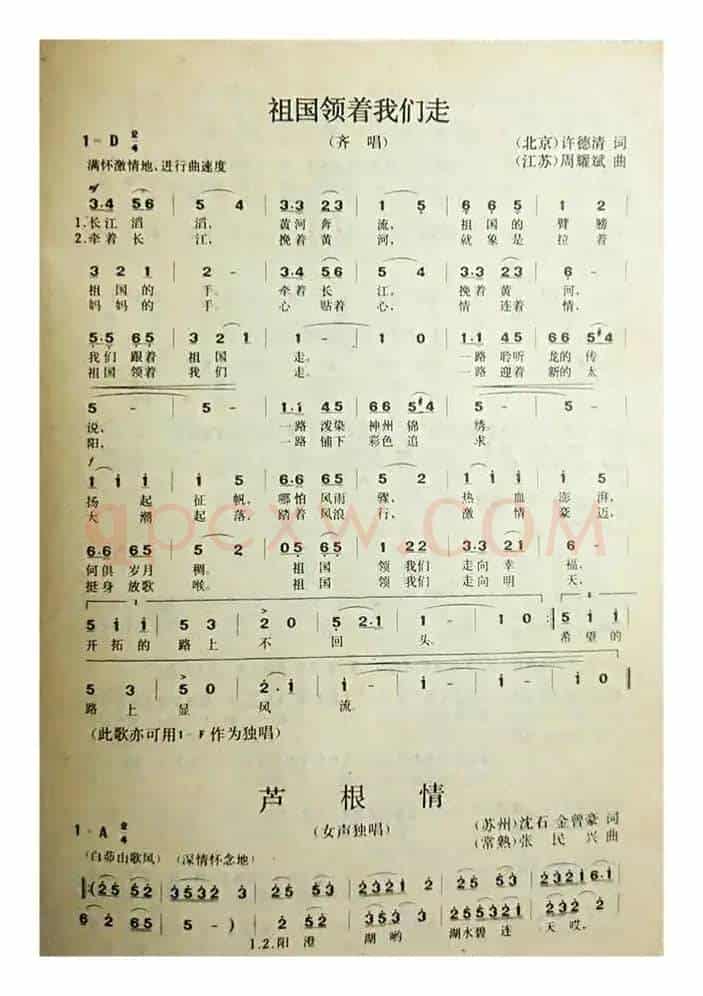 祖国领着我们走
1=D 2/4
(齐唱)
(北京)许德清 词
满怀激情地、进行曲速度
(江苏)周耀斌 曲
mf
3·4 56 | 5 4 | 3·3 23 | 1 5 | 6 6 5 | 1 2 |
1.长江滔滔, 黄河奔流, 祖国的臂膀
2.牵着长江, 挽着黄河, 就象是拉着
3 2 1 | 2 - | 3·4 56 | 5 4 | 3·3 23 | 6 - |
祖国的手。 牵着长江, 挽着黄河,
妈妈的手。 心贴着心, 情连着情,
5·5 65 | 3 2 1 | 1 - | 1 0 | 1·1 45 | 66 5#4 |
我们跟着祖国走。 一路聆听龙的传
祖国领着我们走。 一路迎着新的太
5 - | 5 - | 1·1 45 | 66 5#4 | 5 - | 5 - |
说, 一路泼染神州锦绣。
阳, 一路铺下彩色追求
f
1 1 1 | 1 5 | 6·6 65 | 5 2 | 1 1 1 | 1 5 |
扬起征帆, 哪怕风雨骤, 热血澎湃,
大潮起落, 踏着风浪行, 激情豪迈,
6·6 65 | 5 2 | 05 65 | 1 22 | 3·3 21 | 6 - |
何惧岁月稠。 祖国领我们走向幸福,
挺身放歌喉。 祖国领我们走向明天,
5 1 1 | 5 3 | 2 0 | 5 2·1 | 1 - | 1 0 :| 5 1 1 |
开拓的路上不回头。 希望的
5 3 | 5 0 | 2·1 | 1 - | 1 - | 1 - | 1 0 ‖
路上显风流。
(此歌亦可用1=F作为独唱)
芦根情
1=A 2/4
(女声独唱)
(苏州)沈石 金曾豪 词
(常熟)张民兴 曲
(白茆山歌风) (深情怀念地)
‖:(25 52 | 3532 3 | 25 52 | 2321 2 | 25 53 | 2321 6·1 |
6 2 | 25 52 | 5 -) | 2 52 | 353 3 | 255 53 | 2 325 |
1.2.阳澄湖哟 湖水碧连天哎,